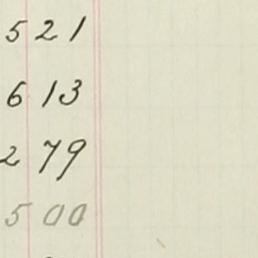 5 21
6 13
2 79
5 00